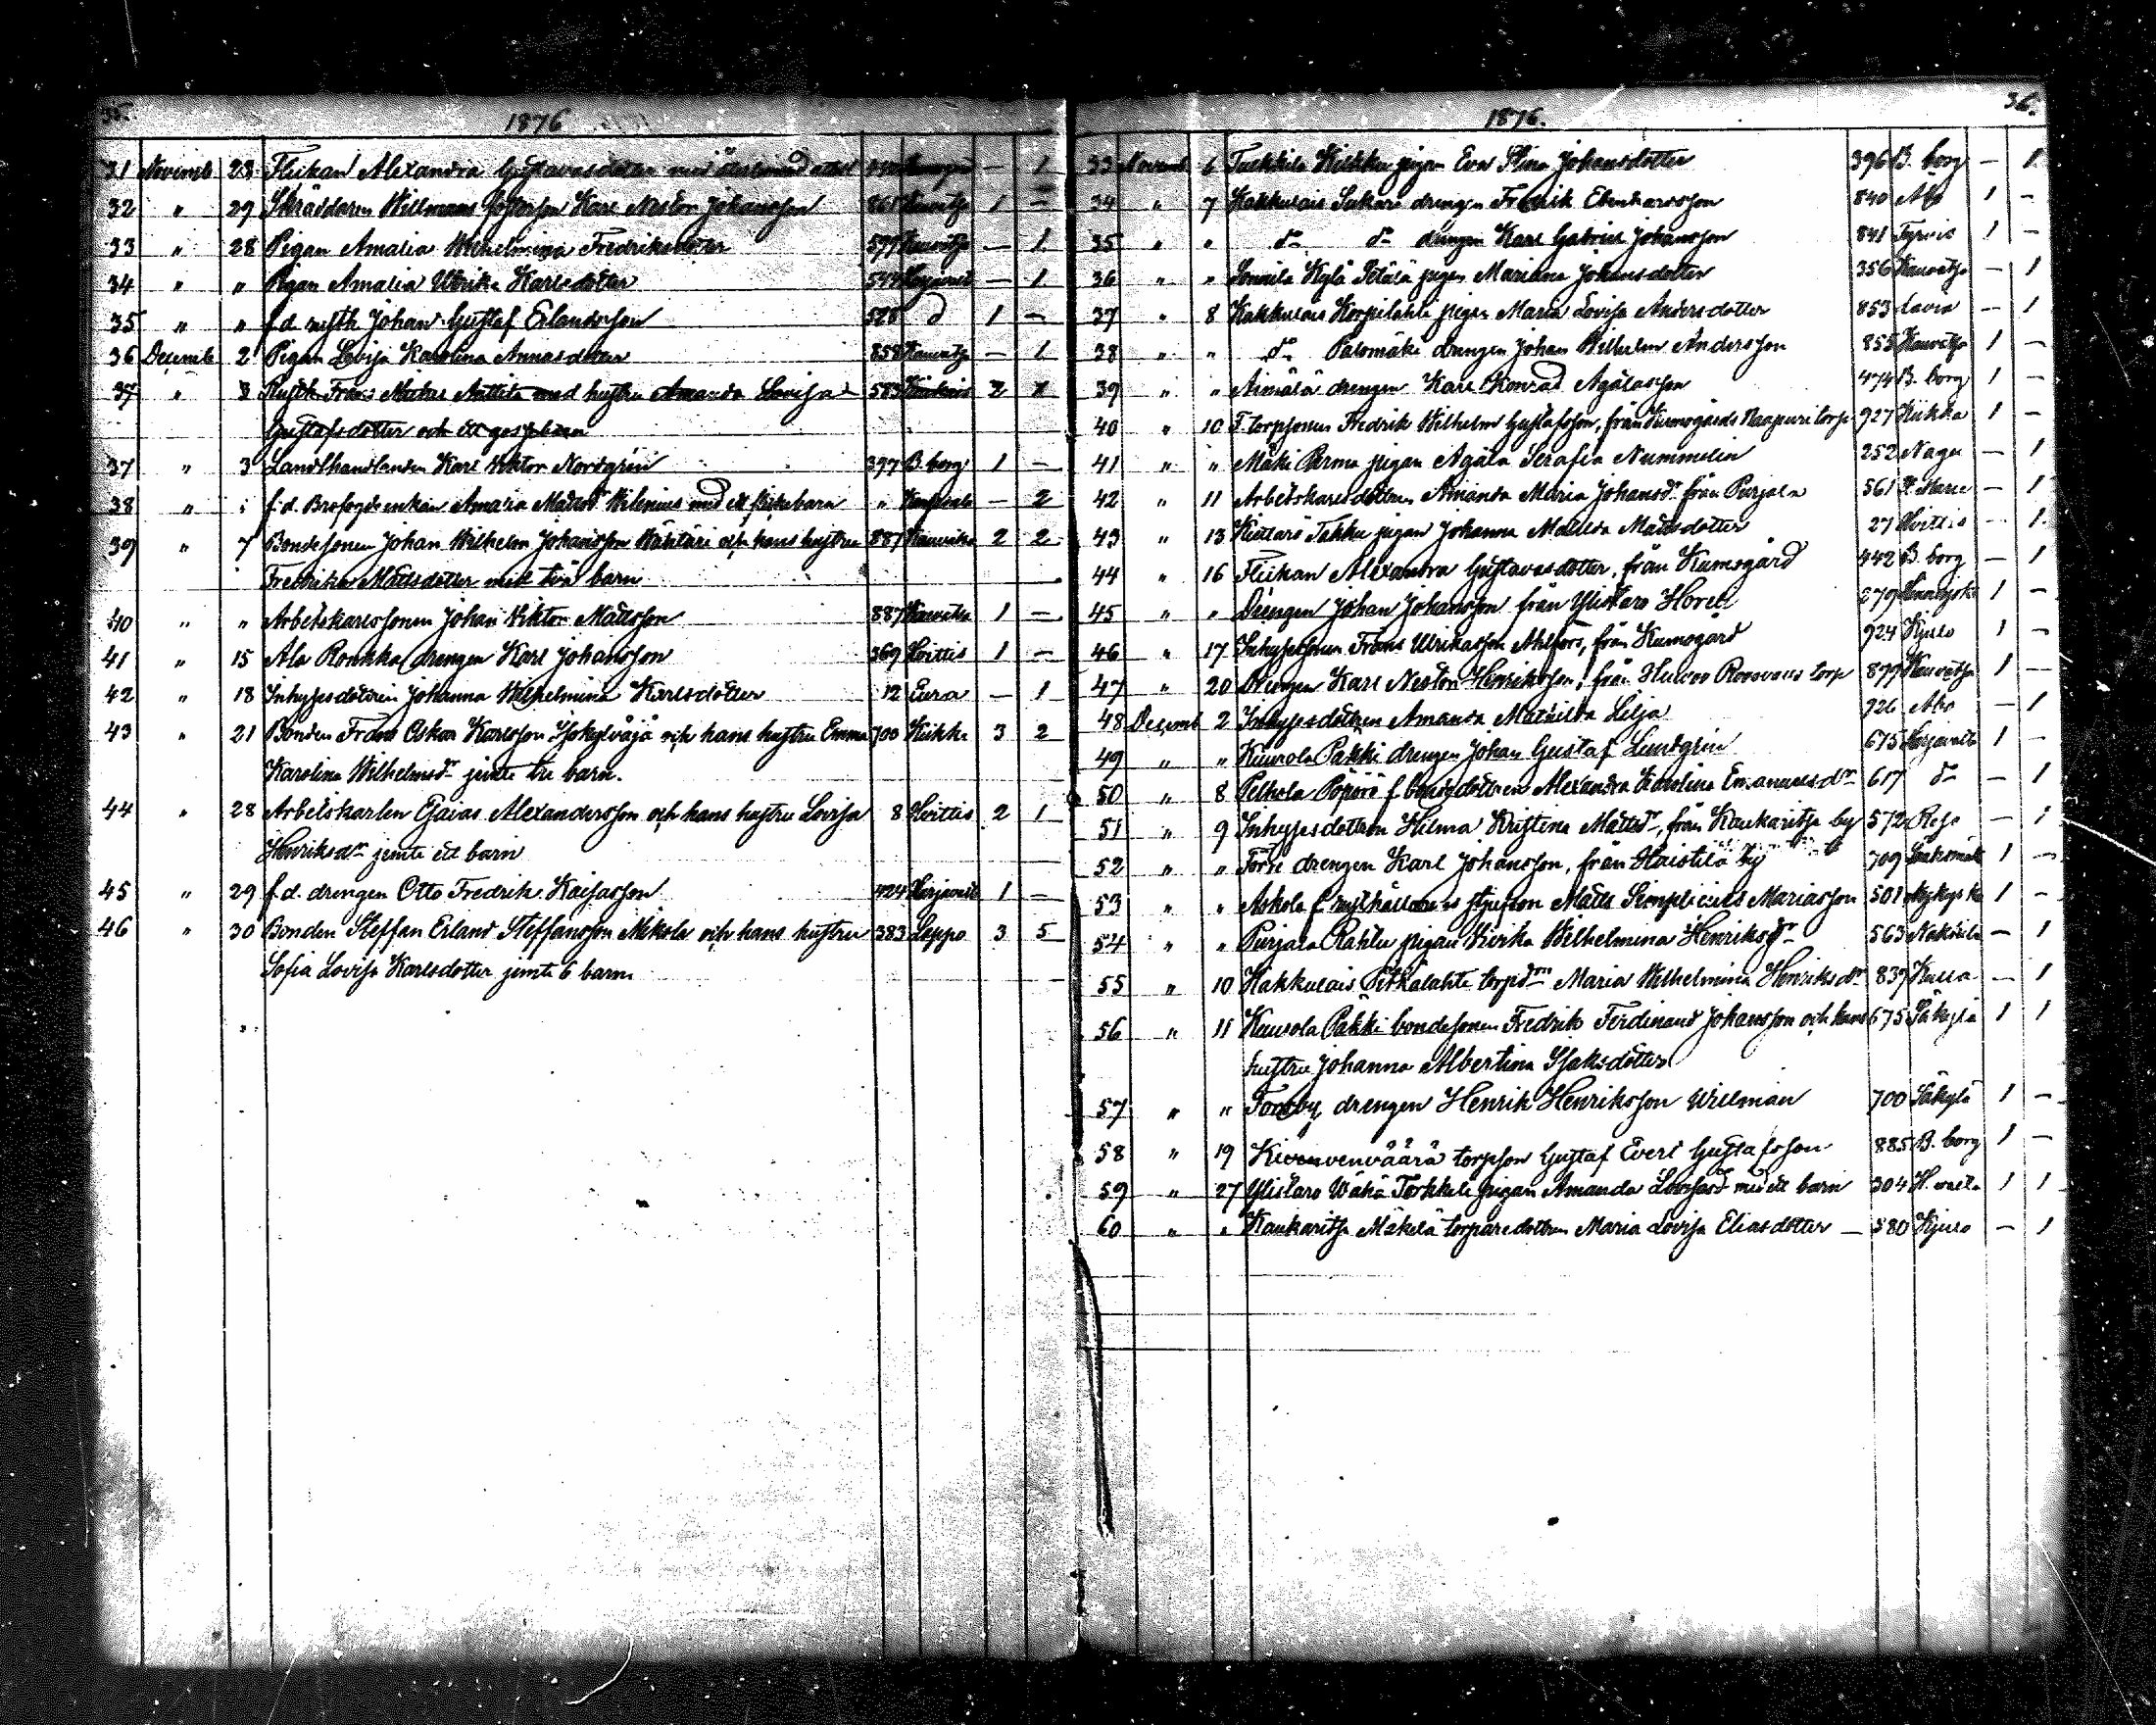 35.
1876
31 Novemb 23 Flickan Alexandra Gustavasdotter med — 1
32 " 29 Skräddaren Willmans Karl Nestor Johansson 1 —
33 " 28 Pigan Amalia Wilhelmina Fredriksdotter — 1
34 " " Pigan Amalia Ulrika Karlsdotter — 1
35 " " f.d. rusth Johan Gustaf Erlandsson 528 d 1 —
36 Decemb 2 Pigan Lovisa Karolina Annasdotter 858 Kauvatsa — 1
37 " 3 Rusth Frans Mikael Anttila med hustru Amanda Lovisa 583 2 1
Gustafsdotter och ett gossebarn
37 " 3 Landthandlanden Karl Viktor Nordgrén 397 B. borg 1 —
38 " " f.d. Brofogdeenkan Amalia Matsdr Wilenius med ett flickebarn " — 2
39 " 7 Bondesonen Johan Wilhelm Johansson och hans hustru 887 Kauvatsa 2 2
Fredrika Mattsdotter med två barn
40 " " Arbetskarlssonen Johan Viktor Mattsson 887 Kauvatsa 1 —
41 " 15 Ala Ronkka drengen Karl Johansson 369 Hvittis 1 —
42 " 18 Inhysesdottren Johanna Wilhelmina Karlsdotter 12 Eura — 1
43 " 21 Bonden Frans Oskar Karlsson och hans hustru Emma 700 Kiikka 3 2
Karolina Wilhelmsdr jemte tre barn.
44 " 28 Arbetskarlen Esaias Alexandersson och hans hustru Lovisa 8 Hvittis 2 1
Henriksdr jemte ett barn
45 " 29 f.d. drengen Otto Fredrik Kaisasson 424 Harjavalt 1 —
46 " 30 Bonden Steffan Erland Steffansson Mikola och hans hustru 383 Leppo 3 5
Sofia Lovisa Karlsdotter jemte 6 barn
36.
1876.
33 Novemb 6 pigan Eva Stina Johansdotter 396 B. borg — 1
34 " 7 Kakkulais Sakari drengen Fredrik 840 Abo 1 —
35 " " do do drengen Karl Gabriel Johansson 841 Tyrvis 1 —
36 " " Sonnila Kylä Pietilä pigan Mariana Johansdotter 356 Kauvatsa — 1
37 " 8 Kakkulais Korpilahti pigan Maria Lovisa Andersdotter 853 Lavia — 1
38 " " do Palomäki drengen Johan Wilhelm Andersson 855 Kauvatsa 1 —
39 " " Äimälä drengen Karl Konrad Agatasson 474 B. borg 1 —
40 " 10 T. torpsonen Fredrik Wilhelm Gustafsson, från Kumogårds Naapuri torp 927 Kiikka 1 —
41 " " Mäki Perma pigan Agata Serafia Nummelin 252 Nagu — 1
42 " 11 Arbetskarlsdottren Amanda Maria Johansdr från Purjala 561 — 1
43 " 13 Takku pigan Johanna Matilda Mattsdotter 27 Hvittis — 1
44 " 16 Flickan Alexandra Gustavasdotter, från Kumogård 442 B. borg — 1
45 " " Drengen Johan Johansson från Ylistaro 279 1 —
46 " 17 Inhysessonen Frans Ulrikasson Ahlfors, från Kumogård 924 Kjulo 1 —
47 " 20 Drengen Karl Nestor Henriksson, från torp 899 Kauvatsa 1 —
48 Decemb 2 Inhysesdottren Amanda Mathilda Lilja 726 Abo — 1
49 " " Kuurola Päkki drengen Johan Gustaf Lundgrin 675 Harjavalt 1 —
50 " 8 Pelhola f bondedottren Alexandra Karolina Emanuelsdr 617 do — 1
51 " 9 Inhysesdottren Hilma Kristina Mattsdr, från Kaukaritsa by 572 — 1
52 " " Torsi drengen Karl Johansson, från Haistila by 709 1 —
53 " " Askola f rusthållarens styfson Matts Simplicius Mariasson 501 1 —
54 " " Purjala Rahtu pigan Wilhelmina Henriksdr 563 Nakkila — 1
55 " 10 Kakkulais Pitkälahti torpdrn Maria Wilhelmina Henriksdr 839 Kulla — 1
56 " 11 Kuurola Päkki bondesonen Fredrik Ferdinand Johansson och hans 675 Säkylä 1 1
hustru Johanna Albertina Isaksdotter
57 " " Forsby drengen Henrik Henriksson Willman 700 Säkylä 1 —
58 " 19 torpson Gustaf Evert Gustafsson 885 B. borg 1 —
59 " 27 Ylistaro Wähä Torkkeli pigan Amanda Lovisasdr med ett barn 304 1 1
60 " " Kaukaritsa Mäkelä torparedottren Maria Lovisa Eliasdotter — 580 Kjulo — 1